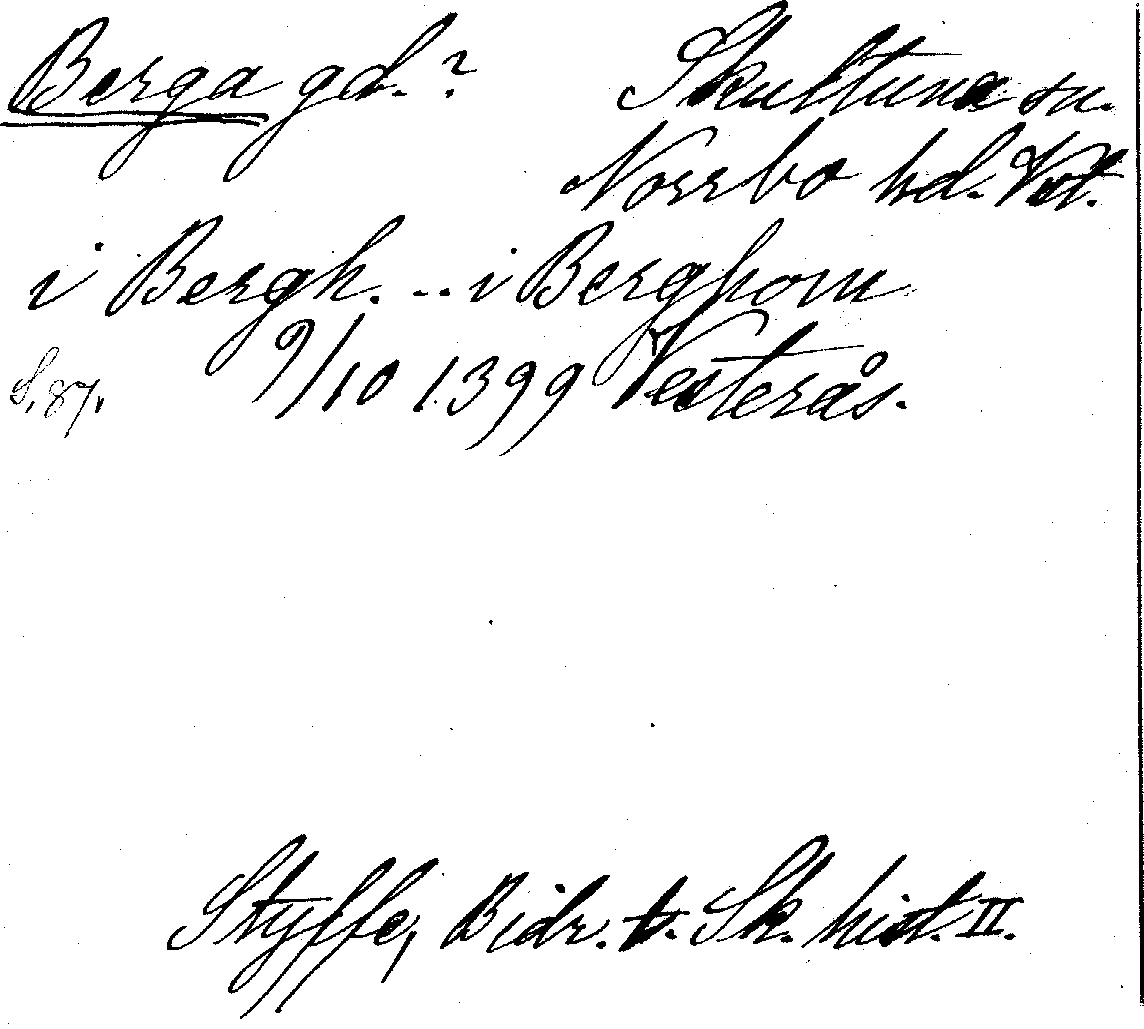 Berga gd.? Skultuna sn.
Norrbo hd. Vstl.
i Bergh. ... i Berghom
S. 87. 9/10 1399 Vesterås.
Styffe, Bidr. t. Sk. hist. II.